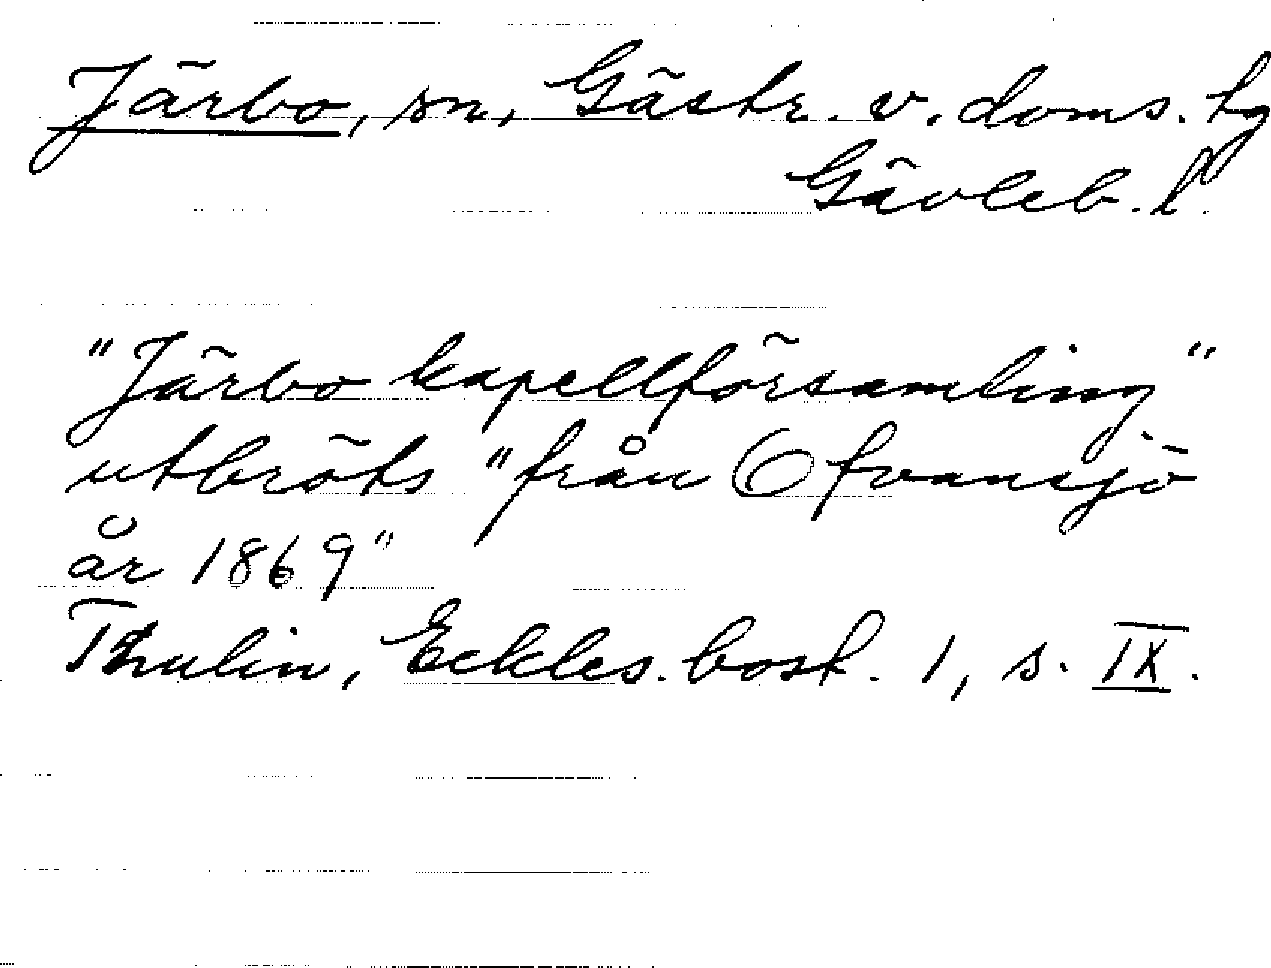 Järbo, sn, Gästr. v. doms. tg
Gävleb. l.
"Järbo kapellförsamling"
utbröts "från Ofvansjö
år 1869"
Thulin, Eckles. bost. 1, s. IX.